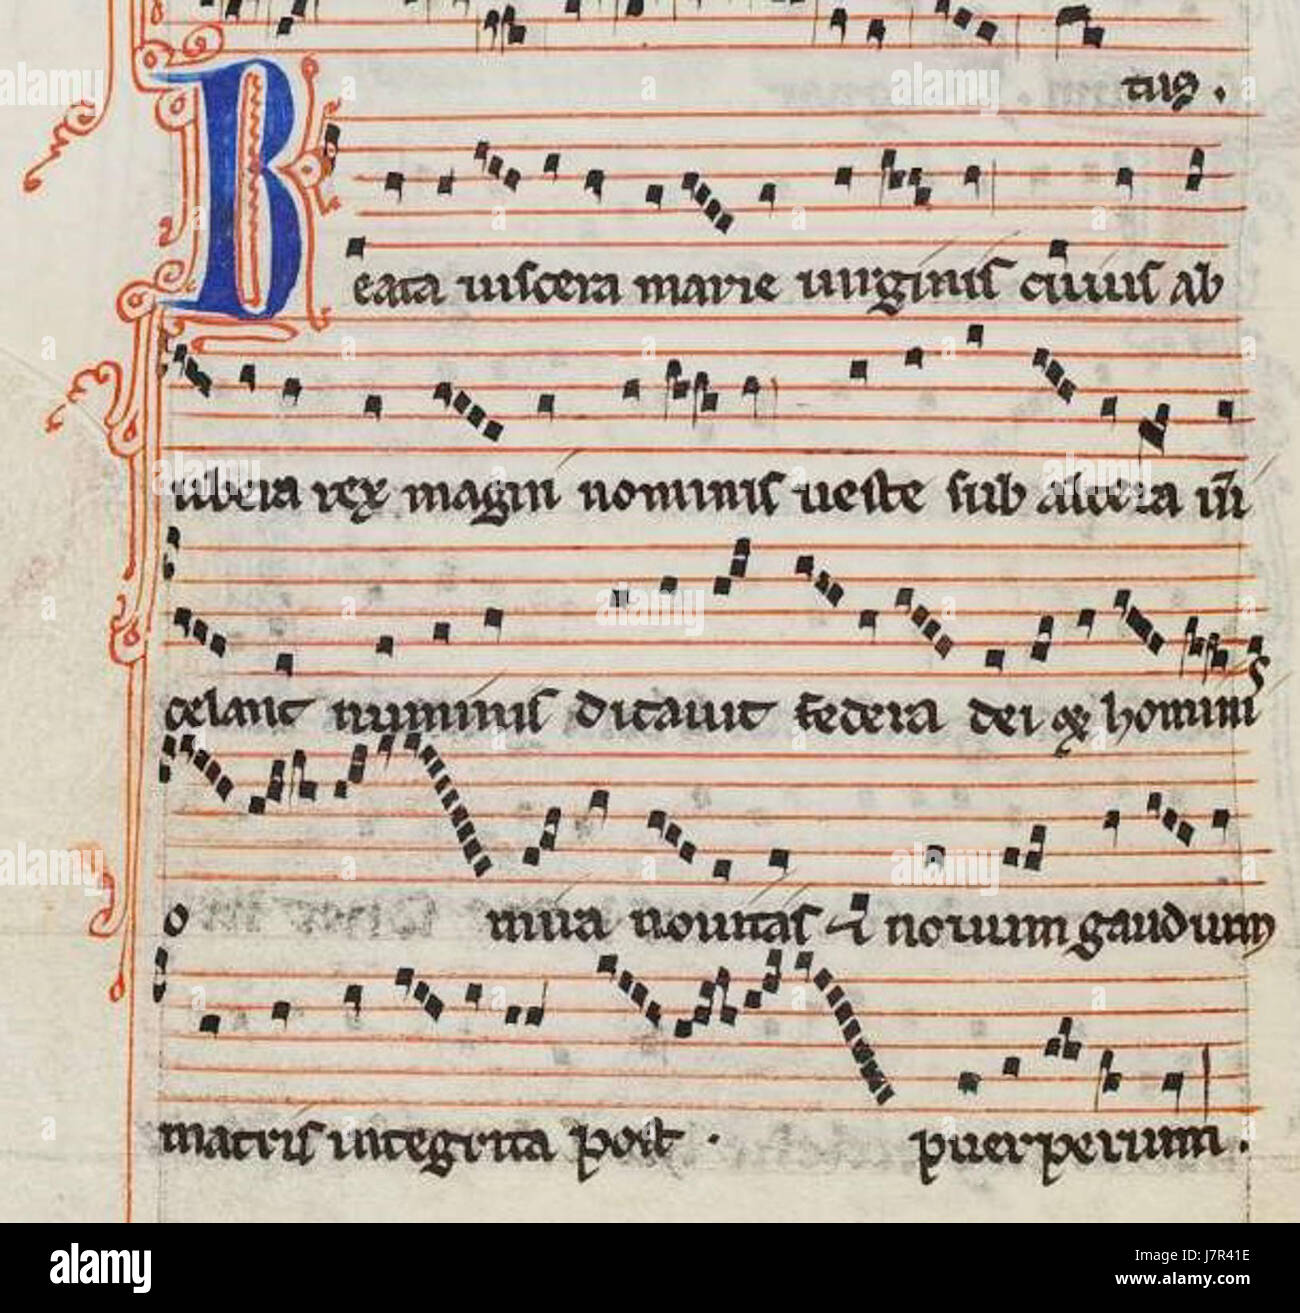 tus.
Beata uiscera marie uirginis cuius ab
ubera rex magni nominis ueste sub altera
celans numinis dictauit federa dei hominis
o mira nouitas et nouum gaudium
matris integrita post. puerperium.
alamy
alamy
Image ID: J7R41E
www.alamy.com